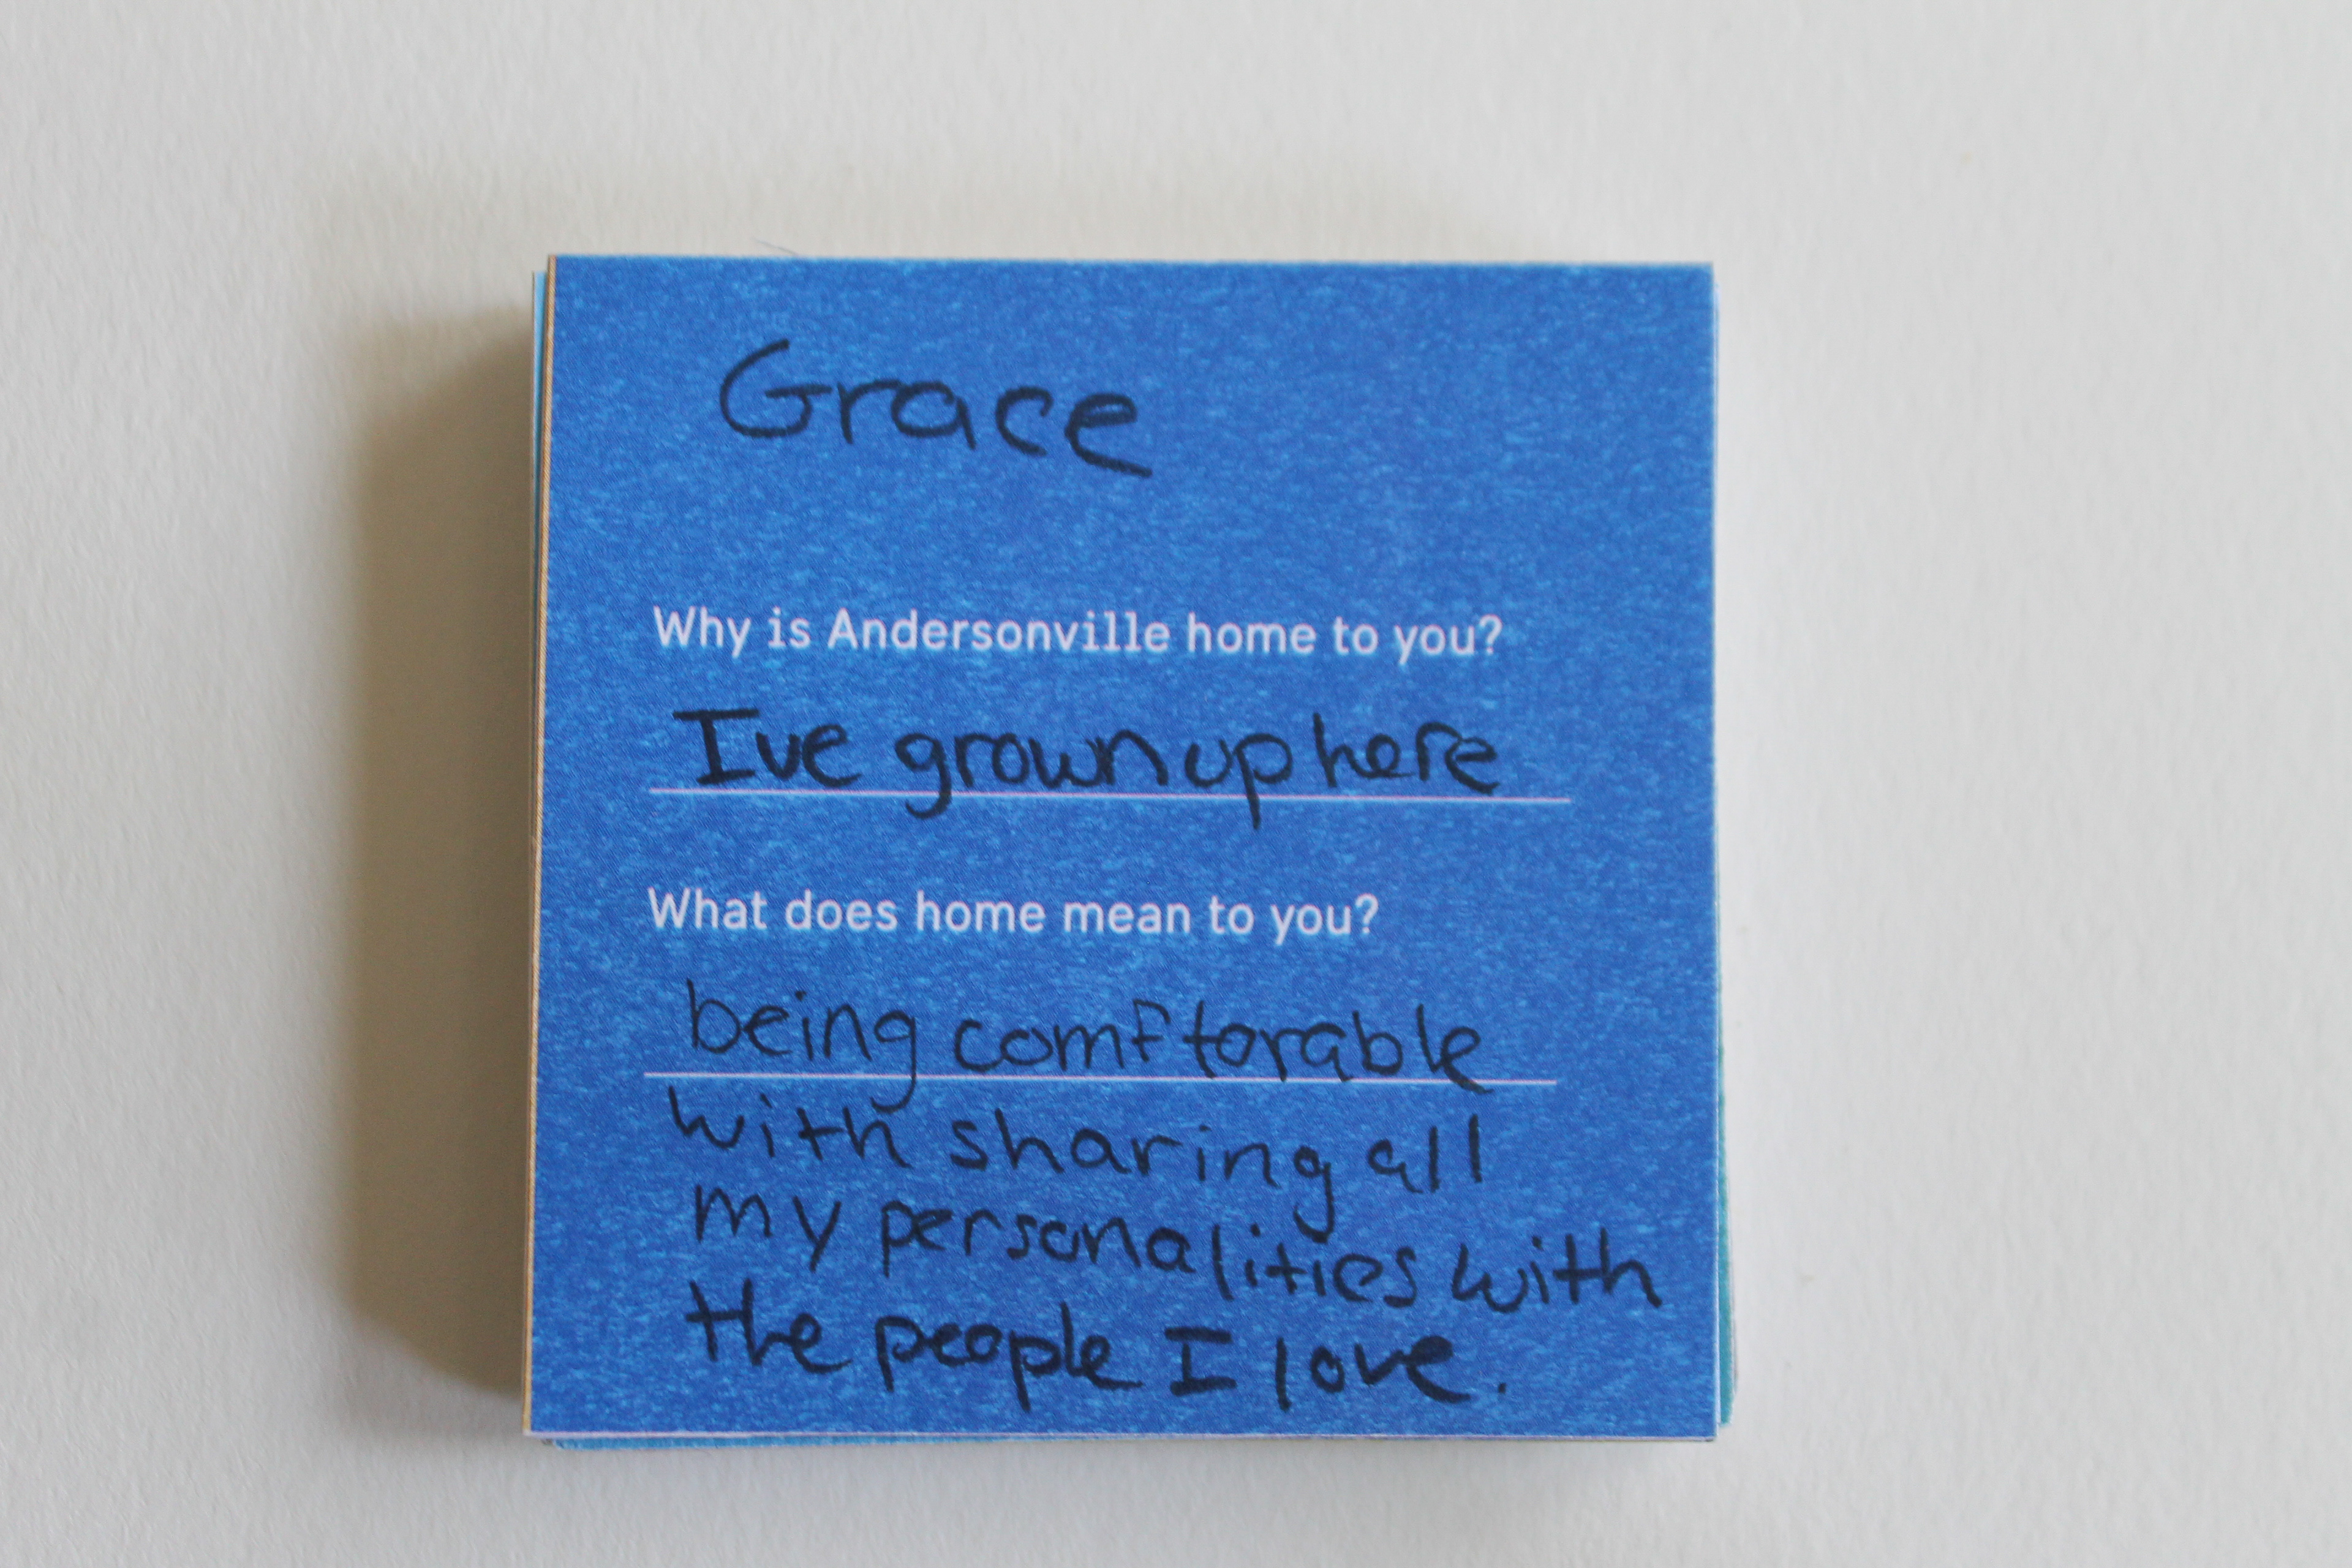 Grace
Why is Andersonville home to you?
Ive grown up here
What does home mean to you?
being comftorable
with sharing all
my personalities with
the people I love.